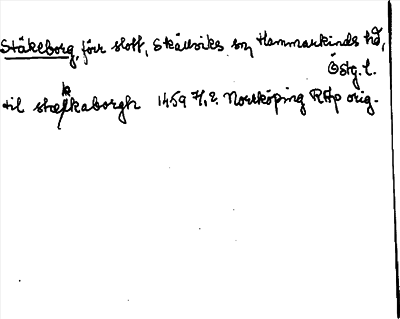 Stäkeborg, förr slott, Skällviks sn, Hammarkinds hd,
Östg. l.
til stækkaborgh 1459 7/12 Norrköping RAp orig.